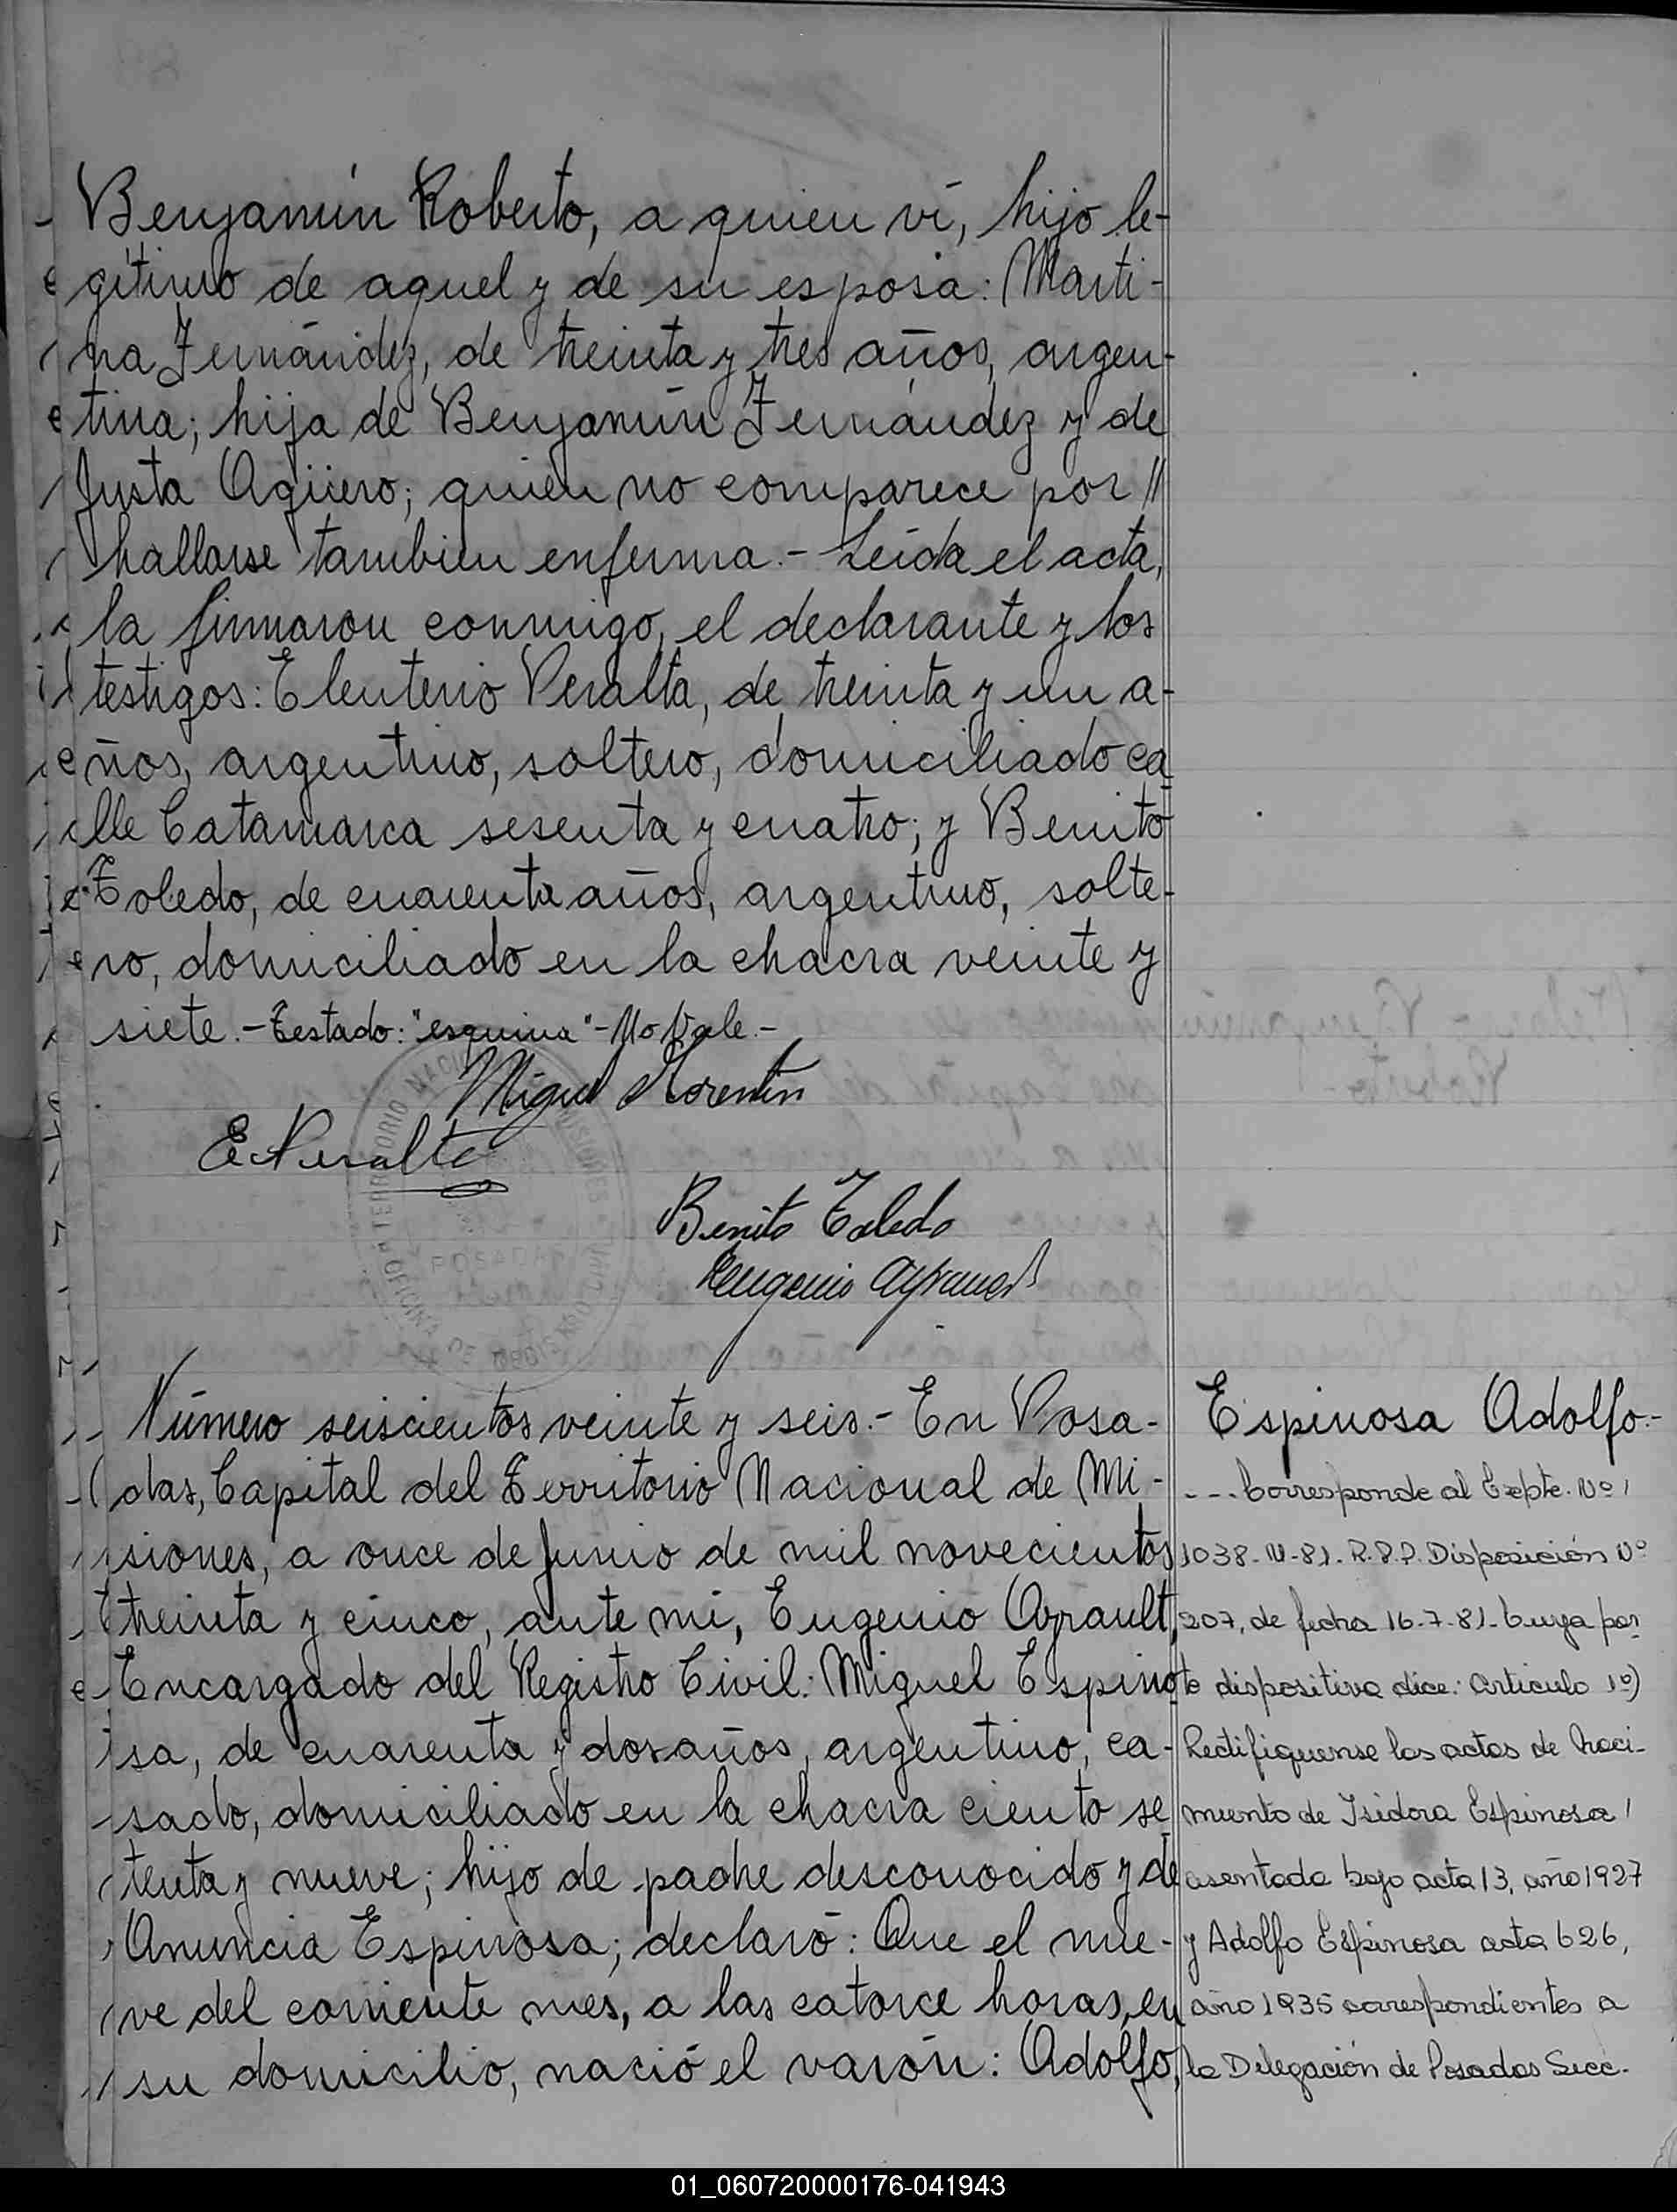 Benjamín Roberto, a quien ví, hijo le-
gítimo de aquel y de su esposa: Marti-
na Fernández, de treinta y tres años, argen-
tina; hija de Benjamín Fernández y de
Justa Agüero; quien no comparece por //
hallarse tambien enferma.- Leída el acta,
la firmaron conmigo, el declarante y los
testigos: Eleuterio Peralta, de treinta y un a-
ños, argentino, soltero, domiciliado ca
lle Catamarca sesenta y cuatro; y Benito
Toledo, de cuarenta años, argentino, solte-
ro, domiciliado en la chacra veinte y
siete.- Testado: "esquina"- No Vale.-
Miguel Morentin
E. Peralta
Benito Toledo
Eugenio
POSADAS
Número seiscientos veinte y seis.- En Posa-
das, Capital del Territorio Nacional de Mi-
siones, a once de Junio de mil novecientos
treinta y cinco, ante mi, Eugenio
Encargado del Registro Civil: Miguel Espino
sa, de cuarenta y dos años, argentino, ca-
sado, domiciliado en la chacra ciento se
tenta y nueve; hijo de padre desconocido y de
Anuncia Espinosa; declaró: Que el nue-
ve del corriente mes, a las catorce horas, en
su domicilio, nació el varón: Adolfo,
Espinosa Adolfo.-
--- Corresponde al Expte. Nº /
1038-IV-81. R.P.P. Disposición Nº
207, de fecha 16-7-81- Cuya par
te dispositiva dice: Artículo 1º)
Rectifiquense las actas de Naci-
miento de Isidora Espinosa /
asentada bajo acta 13, año 1927
y Adolfo Espinosa acta 626,
año 1935 correspondientes a
la Delegación de Posadas Secc.
01_060720000176-041943